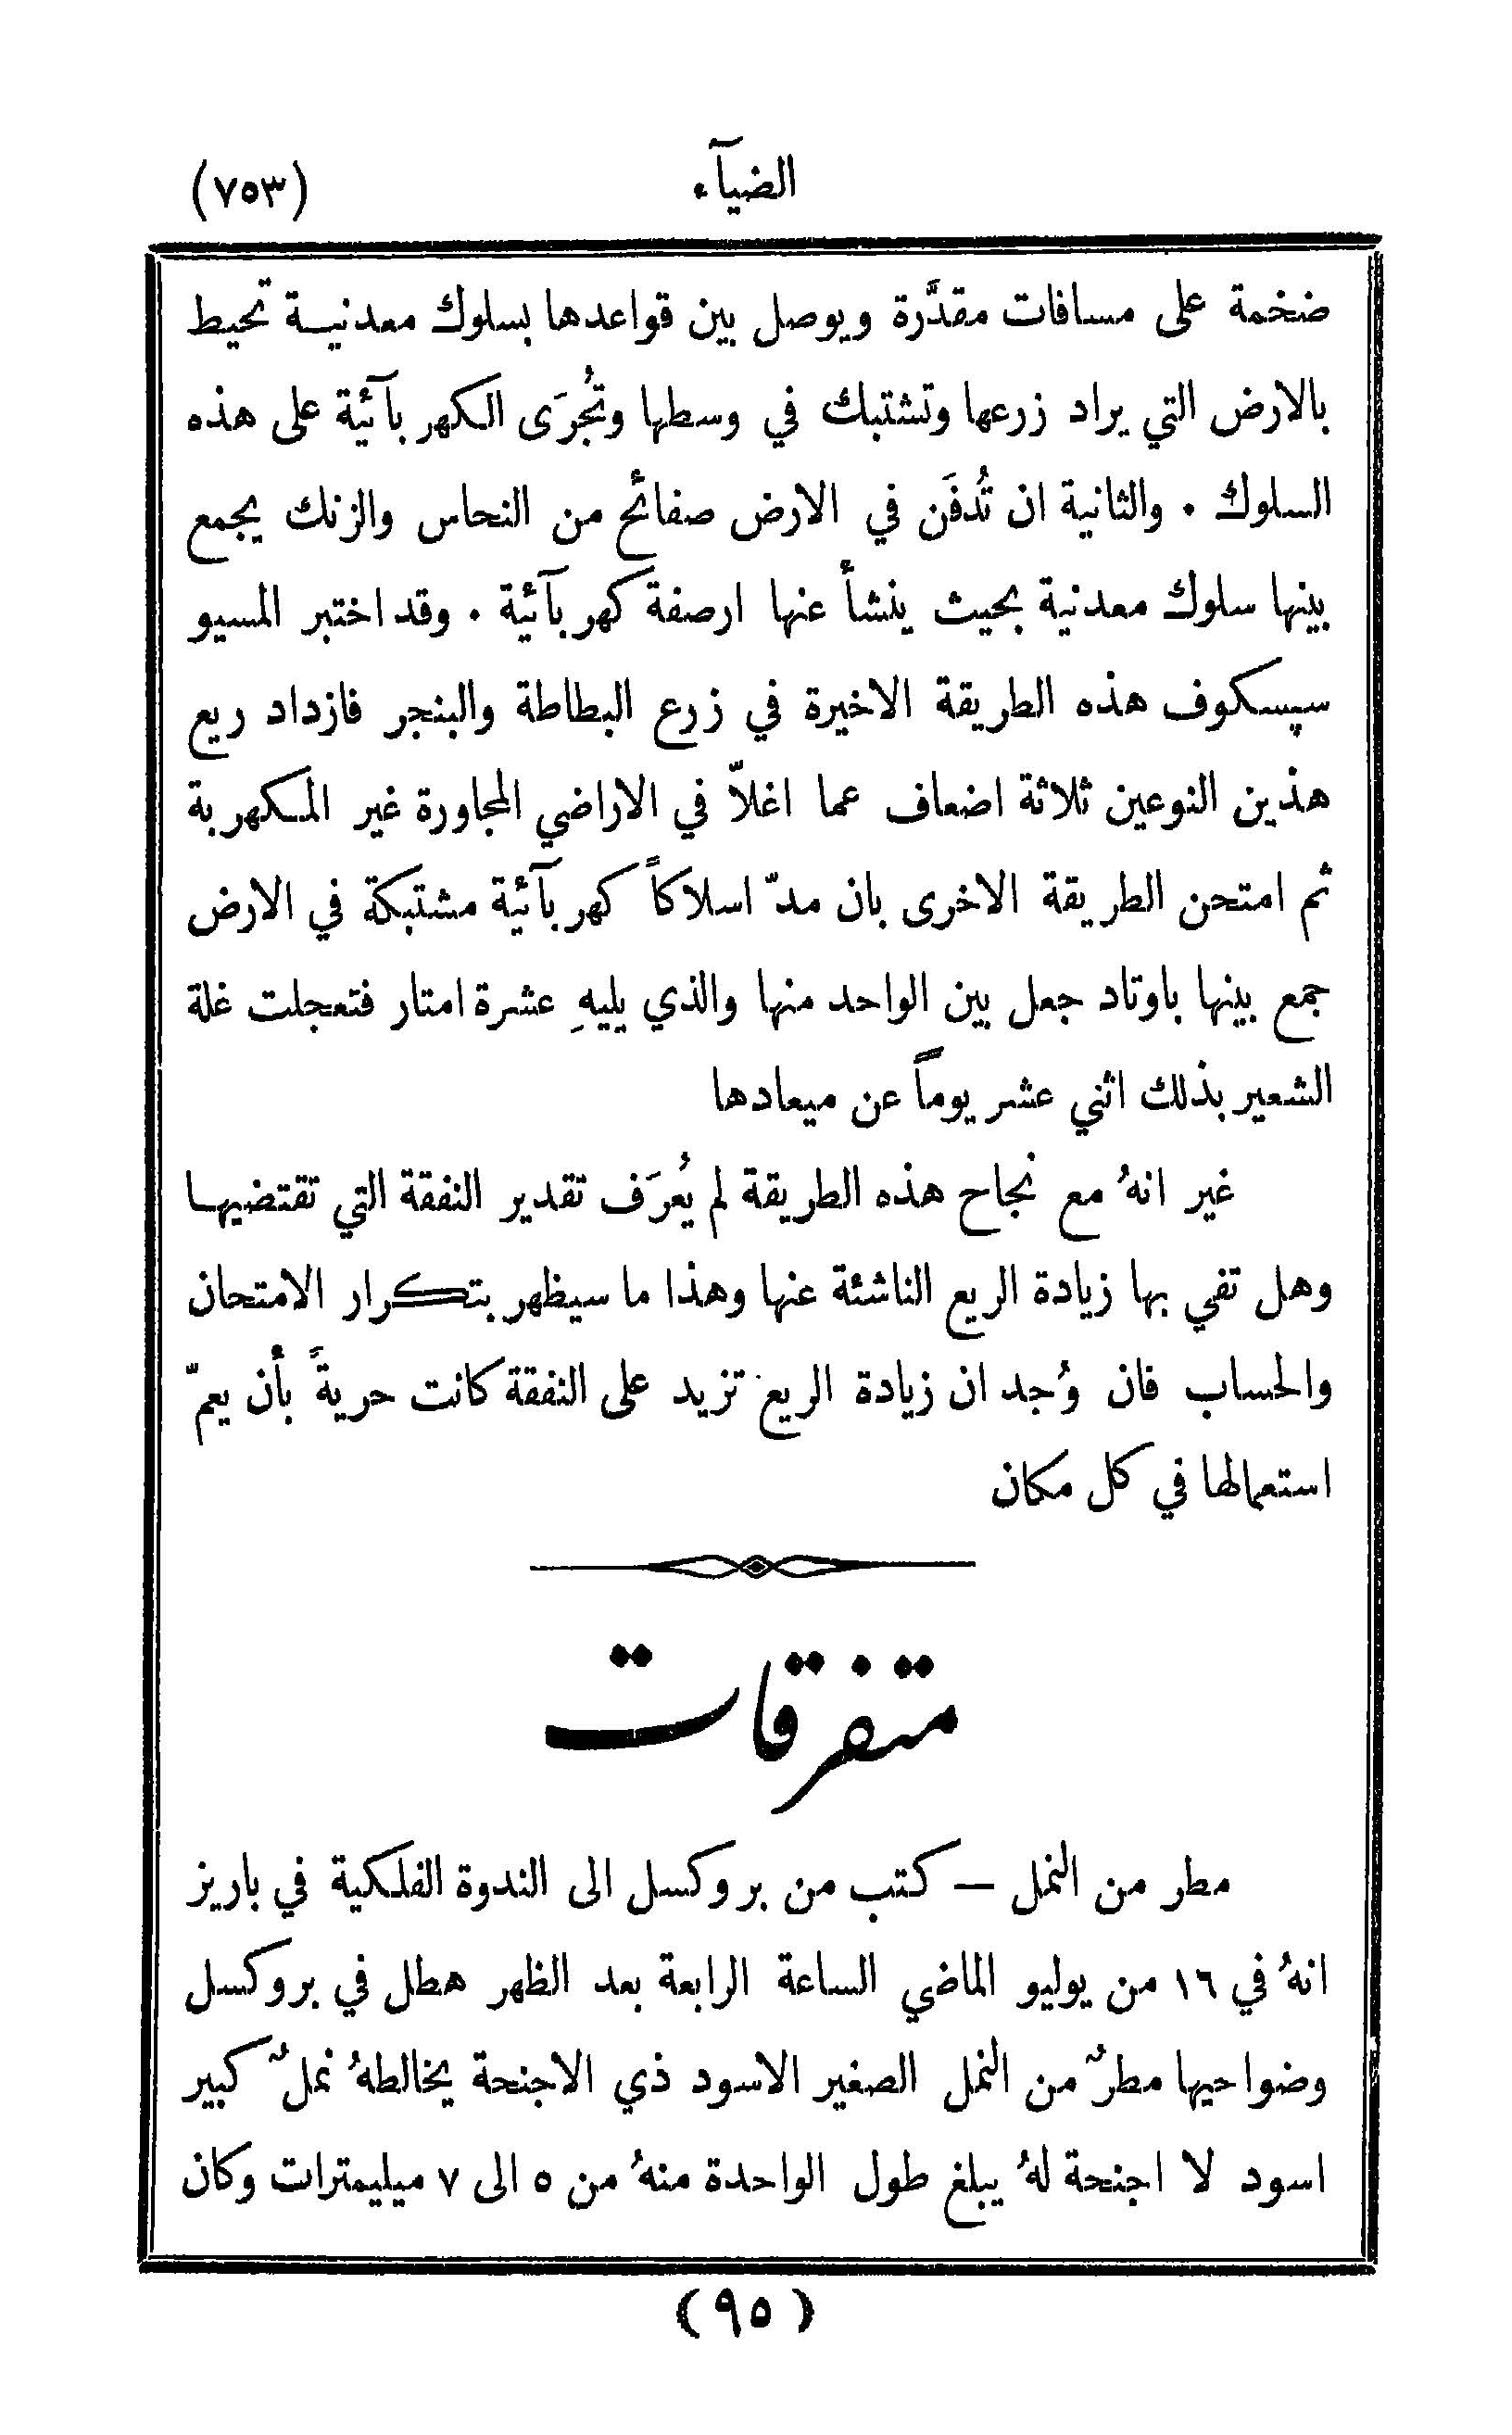 الضيآء (٧٥٣)
ضخمة على مسافات مقدَّرة ويوصل بين قواعدها بسلوك معدنية تحيط
بالارض التي يراد زرعها وتشتبك في وسطها وتُجرَى الكهربآئية على هذه
السلوك . والثانية ان تُدفَن في الارض صفائح من النحاس والزنك يجمع
بينها سلوك معدنية بحيث ينشأ عنها ارصفة كهربآئية . وقد اختبر المسيو
سپسكوف هذه الطريقة الاخيرة في زرع البطاطة والبنجر فازداد ريع
هذين النوعين ثلاثة اضعاف عما اغلاّ في الاراضي المجاورة غير المكهربة
ثم امتحن الطريقة الاخرى بان مدّ اسلاكاً كهربآئية مشتبكة في الارض
جمع بينها باوتاد جعل بين الواحد منها والذي يليهِ عشرة امتار فتعجلت غلة
الشعير بذلك اثني عشر يوماً عن ميعادها
غير انهُ مع نجاح هذه الطريقة لم يُعرَف تقدير النفقة التي تقتضيها
وهل تفي بها زيادة الريع الناشئة عنها وهذا ما سيظهر بتكرار الامتحان
والحساب فان وُجد ان زيادة الريع تزيد على النفقة كانت حريةً بأن يعمّ
استعمالها في كل مكان
متفرقات
مطر من النمل — كتب من بروكسل الى الندوة الفلكية في باريز
انهُ في ١٦ من يوليو الماضي الساعة الرابعة بعد الظهر هطل في بروكسل
وضواحيها مطرٌ من النمل الصغير الاسود ذي الاجنحة يخالطهُ نملٌ كبير
اسود لا اجنحة لهُ يبلغ طول الواحدة منهُ من ٥ الى ٧ ميليمترات وكان
(٩٥)